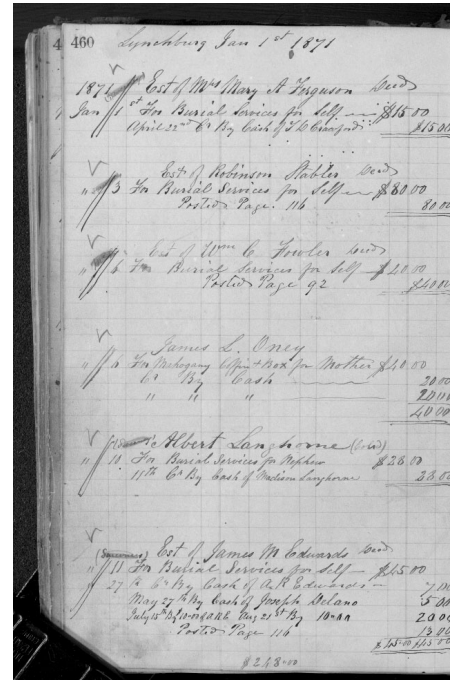 4 460 Lynchburg Jan 1st 1871
1871 Est of Mrs Mary A Ferguson Decd
Jan 1st For Burial Services for Self $15.00
April 22nd Cr By Cash of Crawford $15.00
Est of Robinson Stabler Decd
" 3 For Burial Services for Self $80.00
Posted Page. 116 80.00
Est of Wm C Fowler Decd
" 6 For Burial Services for Self $40.00
Posted Page 92 $40.00
James L. Oney
" 6 For Mahogany Coffin + Box for Mother $40.00
Cr By Cash 20.00
" " " 20.00
40.00
Albert Langhorne (Cold)
" 10 For Burial Services for Nephew $28.00
11th Cr By Cash of Madison Langhorne 28.00
Est of James M Edwards Decd
" 11 For Burial Services for Self $45.00
27th Cr By Cash of A R Edwards 7
May 27th By Cash of Joseph Delano 5.00
July 15th By Aug 21st By 20.00
Posted Page 116 13.00
$45.00 $45.00
$248.00